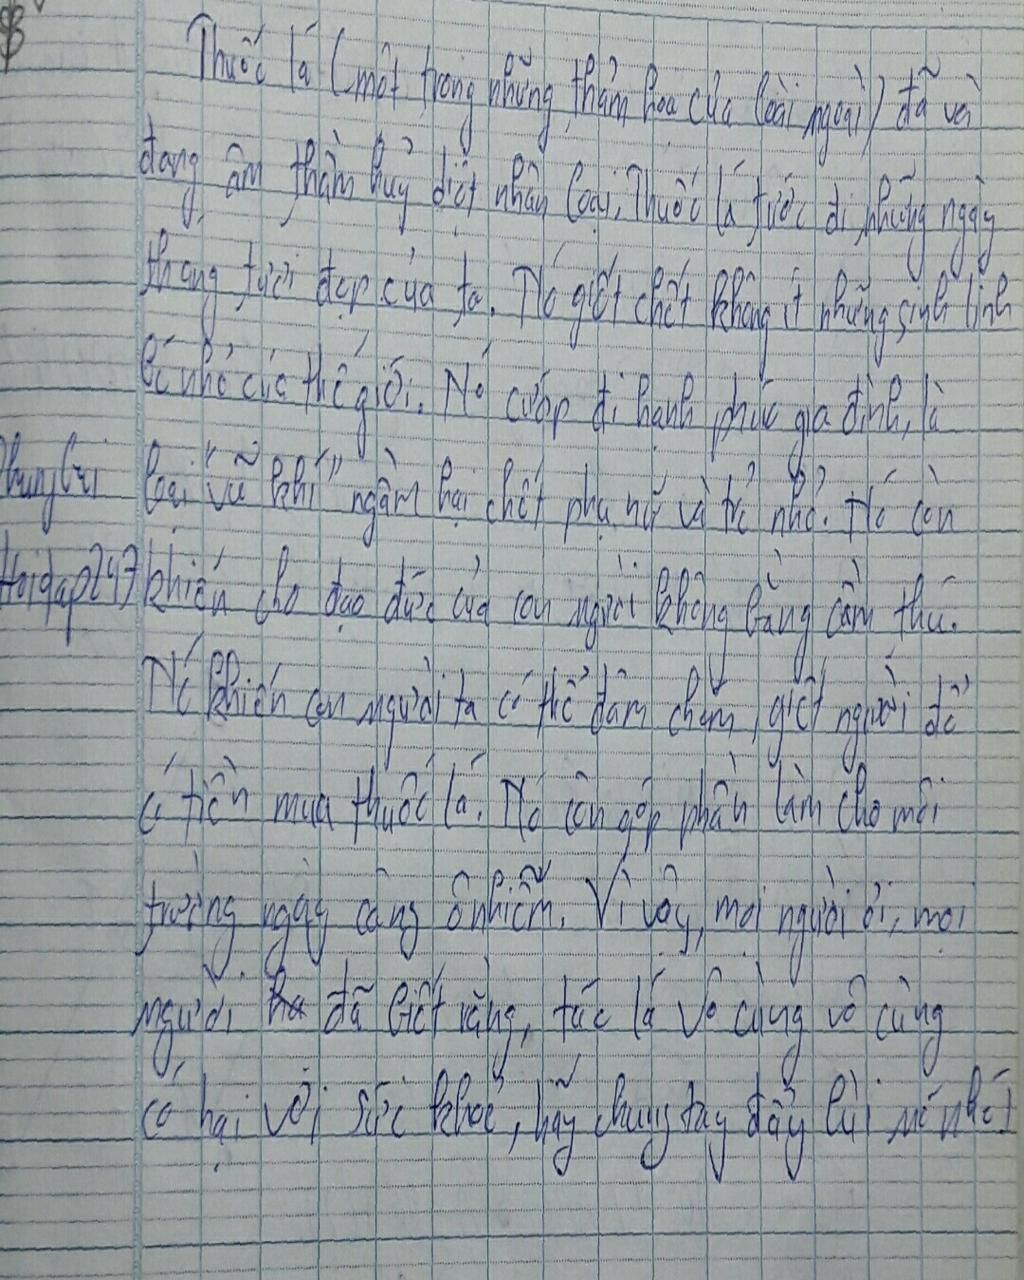 Thuốc lá (một trong những thảm hoạ của loài ngoài) đã và
đang âm thầm huỷ diệt nhân loại. Thuốc lá tước đi những ngày
tháng tươi đẹp của ta. Nó giết chết không ít những sinh linh
bé nhỏ của thế giới. Nó cướp đi hạnh phúc gia đình, là
loại "vũ khí" ngầm hại chết phụ nữ và trẻ nhỏ. Nó còn
Hoidap247 khiến cho đạo đức của con người không bằng cầm thú.
Nó khiến con người ta có thể đâm chém, giết người để
có tiền mua thuốc lá. Nó còn góp phần làm cho môi
trường ngày càng ô nhiễm. Vì vậy, mọi người ơi, mọi
người đã biết rằng, tác lá vô cùng vô cùng
có hại với sức khoẻ, hãy chung tay đẩy lùi nó nhé!